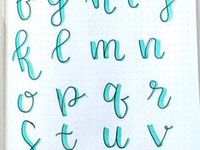 f g h i j
k l m n
o p q r
s t u v